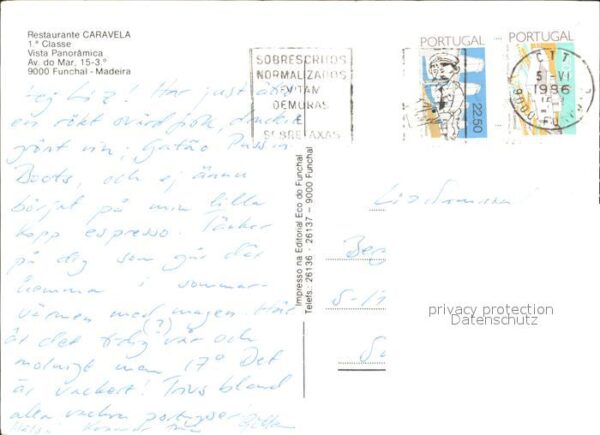 Restaurante CARAVELA
1.ª Classe
Vista Panorâmica
Av. do Mar, 15-3.º
9000 Funchal - Madeira
SOBRESCRITOS
NORMALIZADOS
EVITAM
DEMORAS
E
SOBRETAXAS
PORTUGAL
22.50
PORTUGAL
CTT
1986
9000
Hej Liz! Har just ätit
en rökt svärdfisk, druckit
grönt vin, Gatão Puss in
Boots, och ej ännu
börjat på min lilla
kopp espresso. Tänker
på dig som går där
hemma i sommar-
värmen med magen. Här
är det tidig vår och
(?)
molnigt men 17° Det
är vackert! Trivs bland
alla vackra portugiser!
Impresso na Editorial Eco do Funchal
Telefs. 26136 - 26137 - 9000 Funchal
Liz
Ber
S-1
privacy protection
Datenschutz